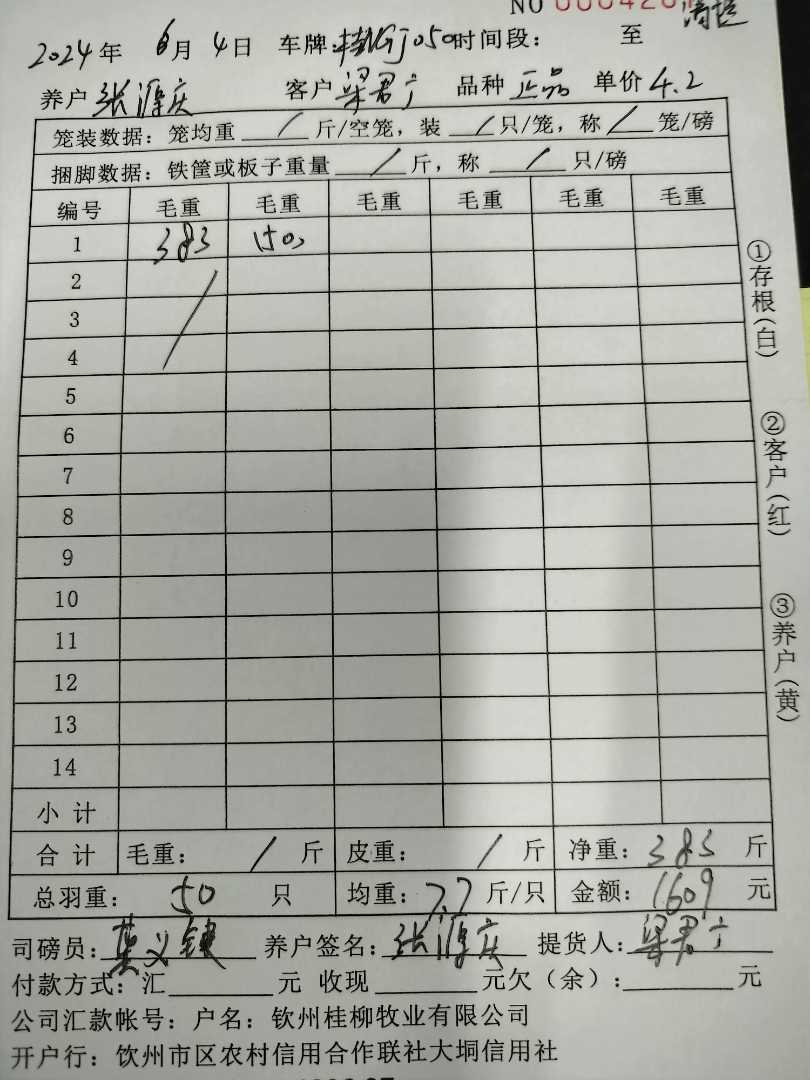 NO 000420
2024年 6月 4日 车牌: 时间段: 至
养户 张源庆 客户 梁君广 品种 正品 单价 4.2
笼装数据: 笼均重 / 斤/空笼, 装 / 只/笼, 称 / 笼/磅
捆脚数据: 铁筐或板子重量 / 斤, 称 / 只/磅
编号 毛重 毛重 毛重 毛重 毛重 毛重
1 383 (50)
2
3
4
5
6
7
8
9
10
11
12
13
14
小计
合计 毛重: / 斤 皮重: / 斤 净重: 383 斤
总羽重: 50 只 均重: 7.7 斤/只 金额: 1609 元
司磅员: 莫义键 养户签名: 张源庆 提货人: 梁君广
付款方式: 汇 元 收现 元欠(余): 元
公司汇款帐号: 户名: 钦州桂柳牧业有限公司
开户行: 钦州市区农村信用合作联社大垌信用社
①存根(白)
②客户(红)
③养户(黄)